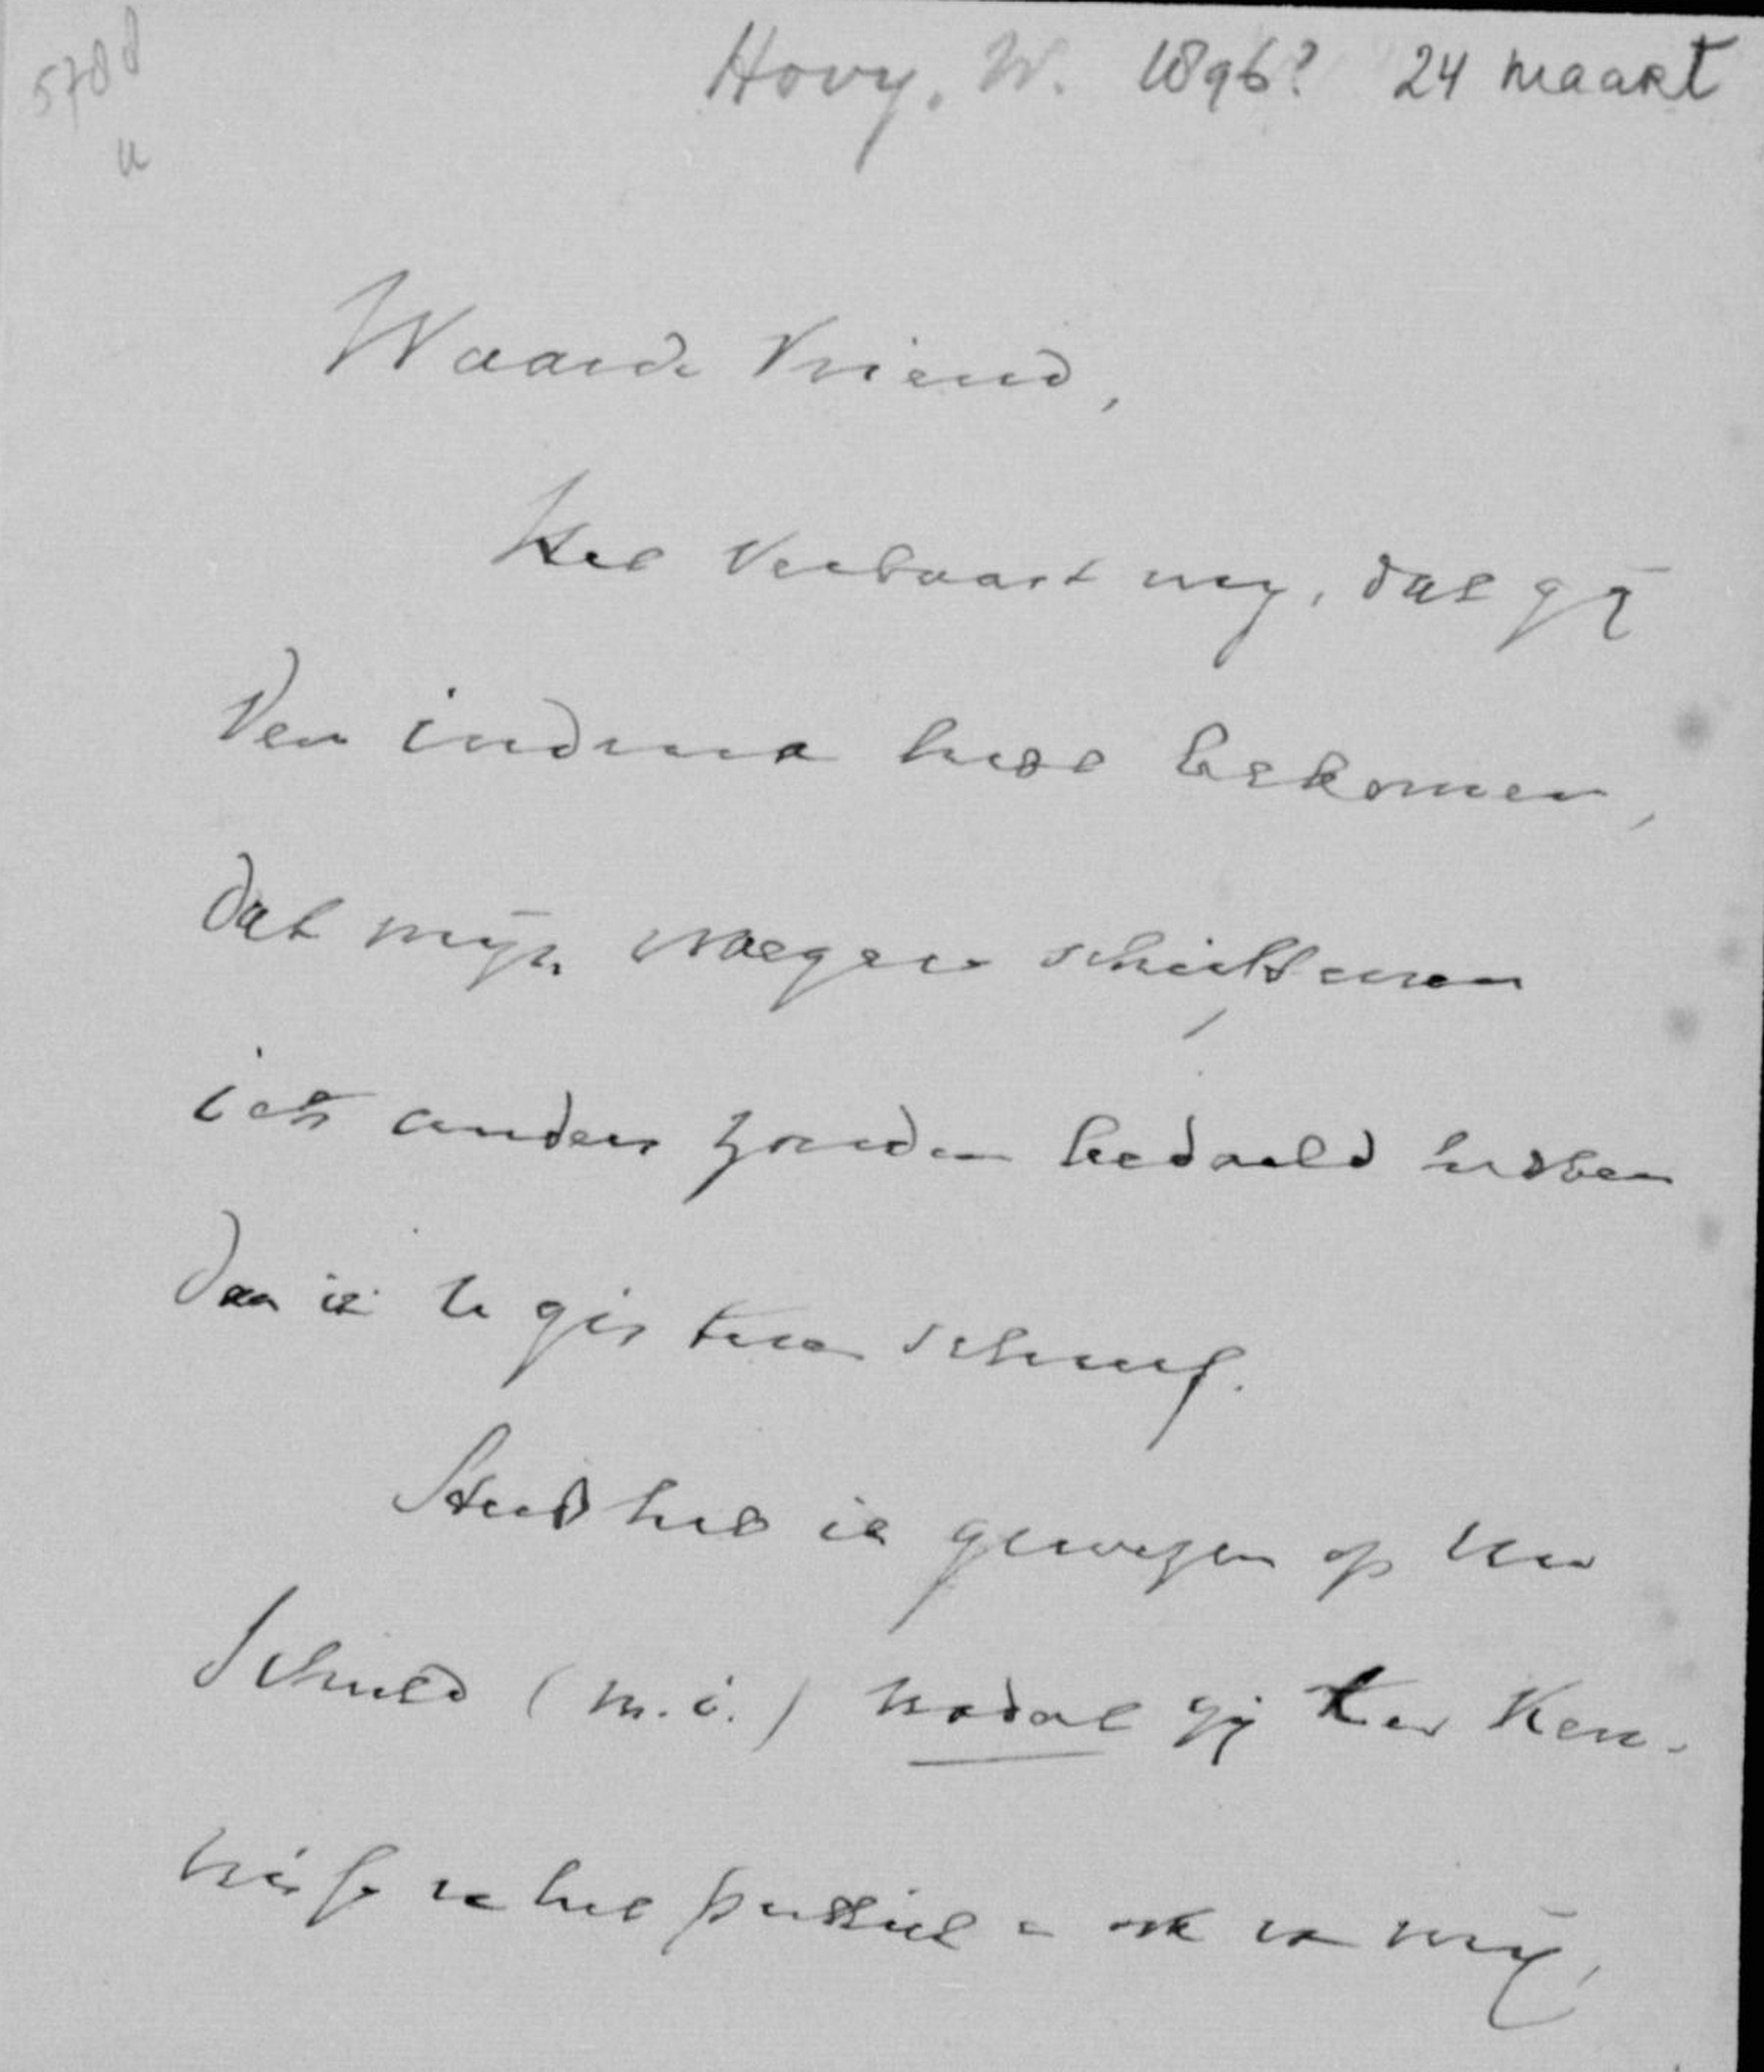 5788
u
Hovy, W. 1896? 24 maart
Waarde Vriend,
Het verbaast mij, dat gij
den indruk hebt bekomen,
dat mijn vroegere schrifturen
iets anders zouden bedoeld hebben
dan ik u gisteren schreef.
Steeds heb ik gewezen op uw
Schuld (m.i.) nadat gij ter ken-
nisse van het publiek en ook van mij,